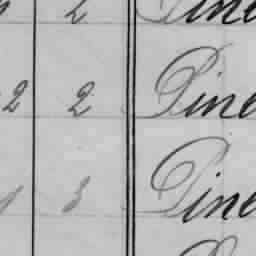 2 Pine
2 2 Pine
1 3 Pine